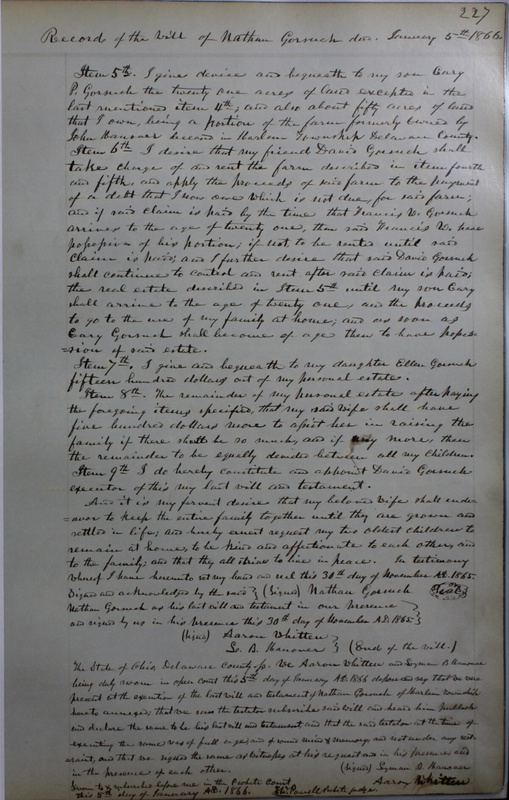 227
Record of the Will of Nathan Gorsuch dec. January 5th 1866.
Item 5th. I give devise and bequeath to my son Cary
P. Gorsuch the twenty one acres of land excepted in the
last mentioned item 4th; and also about fifty acres of land
that I own, being a portion of the farm formerly owned by
John Hanover second in Harlem Township Delaware County.
Item 6th I desire that my friend David Gorsuch shall
take charge of and rent the farm described in item fourth
and fifth, and apply the proceeds of said farm to the payment
of a debt that I now owe which is not due, for said farm;
and if said claim is paid by the time that Francis W. Gorsuch
arrives to the age of twenty one, then said Francis W.
possession of his portion; if not to be rented until said
claim is paid; and I further desire that said David Gorsuch
shall continue to control and rent after said claim is paid;
the real estate described in Item 5th until my son Cary
shall arrive to the age of twenty one, and the proceeds
to go to the use of my family at home; and as soon as
Cary Gorsuch shall become of age then to have posses-
=sion of said estate.
Item 7th. I give and bequeath to my daughter Ellen Gorsuch
fifteen hundred dollars out of my personal estate.
Item 8th. The remainder of my personal estate after paying
the foregoing items specified, that my said wife shall have
five hundred dollars more to assist her in raising the
family if there should be so much, and if any more, then
the remainder to be equally devided between all my children.
Item 9th I do hereby constitute and appoint David Gorsuch
executor of this my last will and testament.
And it is my fervent desire that my beloved wife shall ende-
=avor to keep the entire family together until they are grown and
settled in life; and hereby earnest request my two oldest children to
remain at home, to be kind and affectionate to each other, and
to the family; and that they all strive to live in peace. In testimony
whereof I have hereunto set my hand and seal this 30th day of November A.D. 1865.
Signed and acknowledged by the said } (Signed) Nathan Gorsuch (Seal)
Nathan Gorsuch as his last will and testament in our presence
and signed by us in his presence this 30th day of November A.D. 1865 }
(Signed) Aaron Whitten
B. Hanover } (End of the will.)
The State of Ohio, Delaware County ss. We Aaron Whitten and Lyman B Hanover
being duly sworn in open court this 5th day of January A.D. 1866 depose and say that we were
present at the execution of the last will and testament of Nathan Gorsuch of Harlem Township
hereto annexed; that we saw the testator subscribe said will and heard him publish
and declare the same to be his last will and testament, and that the said testator at the time of
executing the same was of full age, and of sound mind & memory, and not under any rest-
raint, and that we signed the same as witnesses at his request and in his presence and
in the presence of each other. (Signed) Lyman B Hanover
Sworn to & subscribed before me in the Probate Court Aaron Whitten
this 5th day of January A.D. 1866. Powell Probate judge.